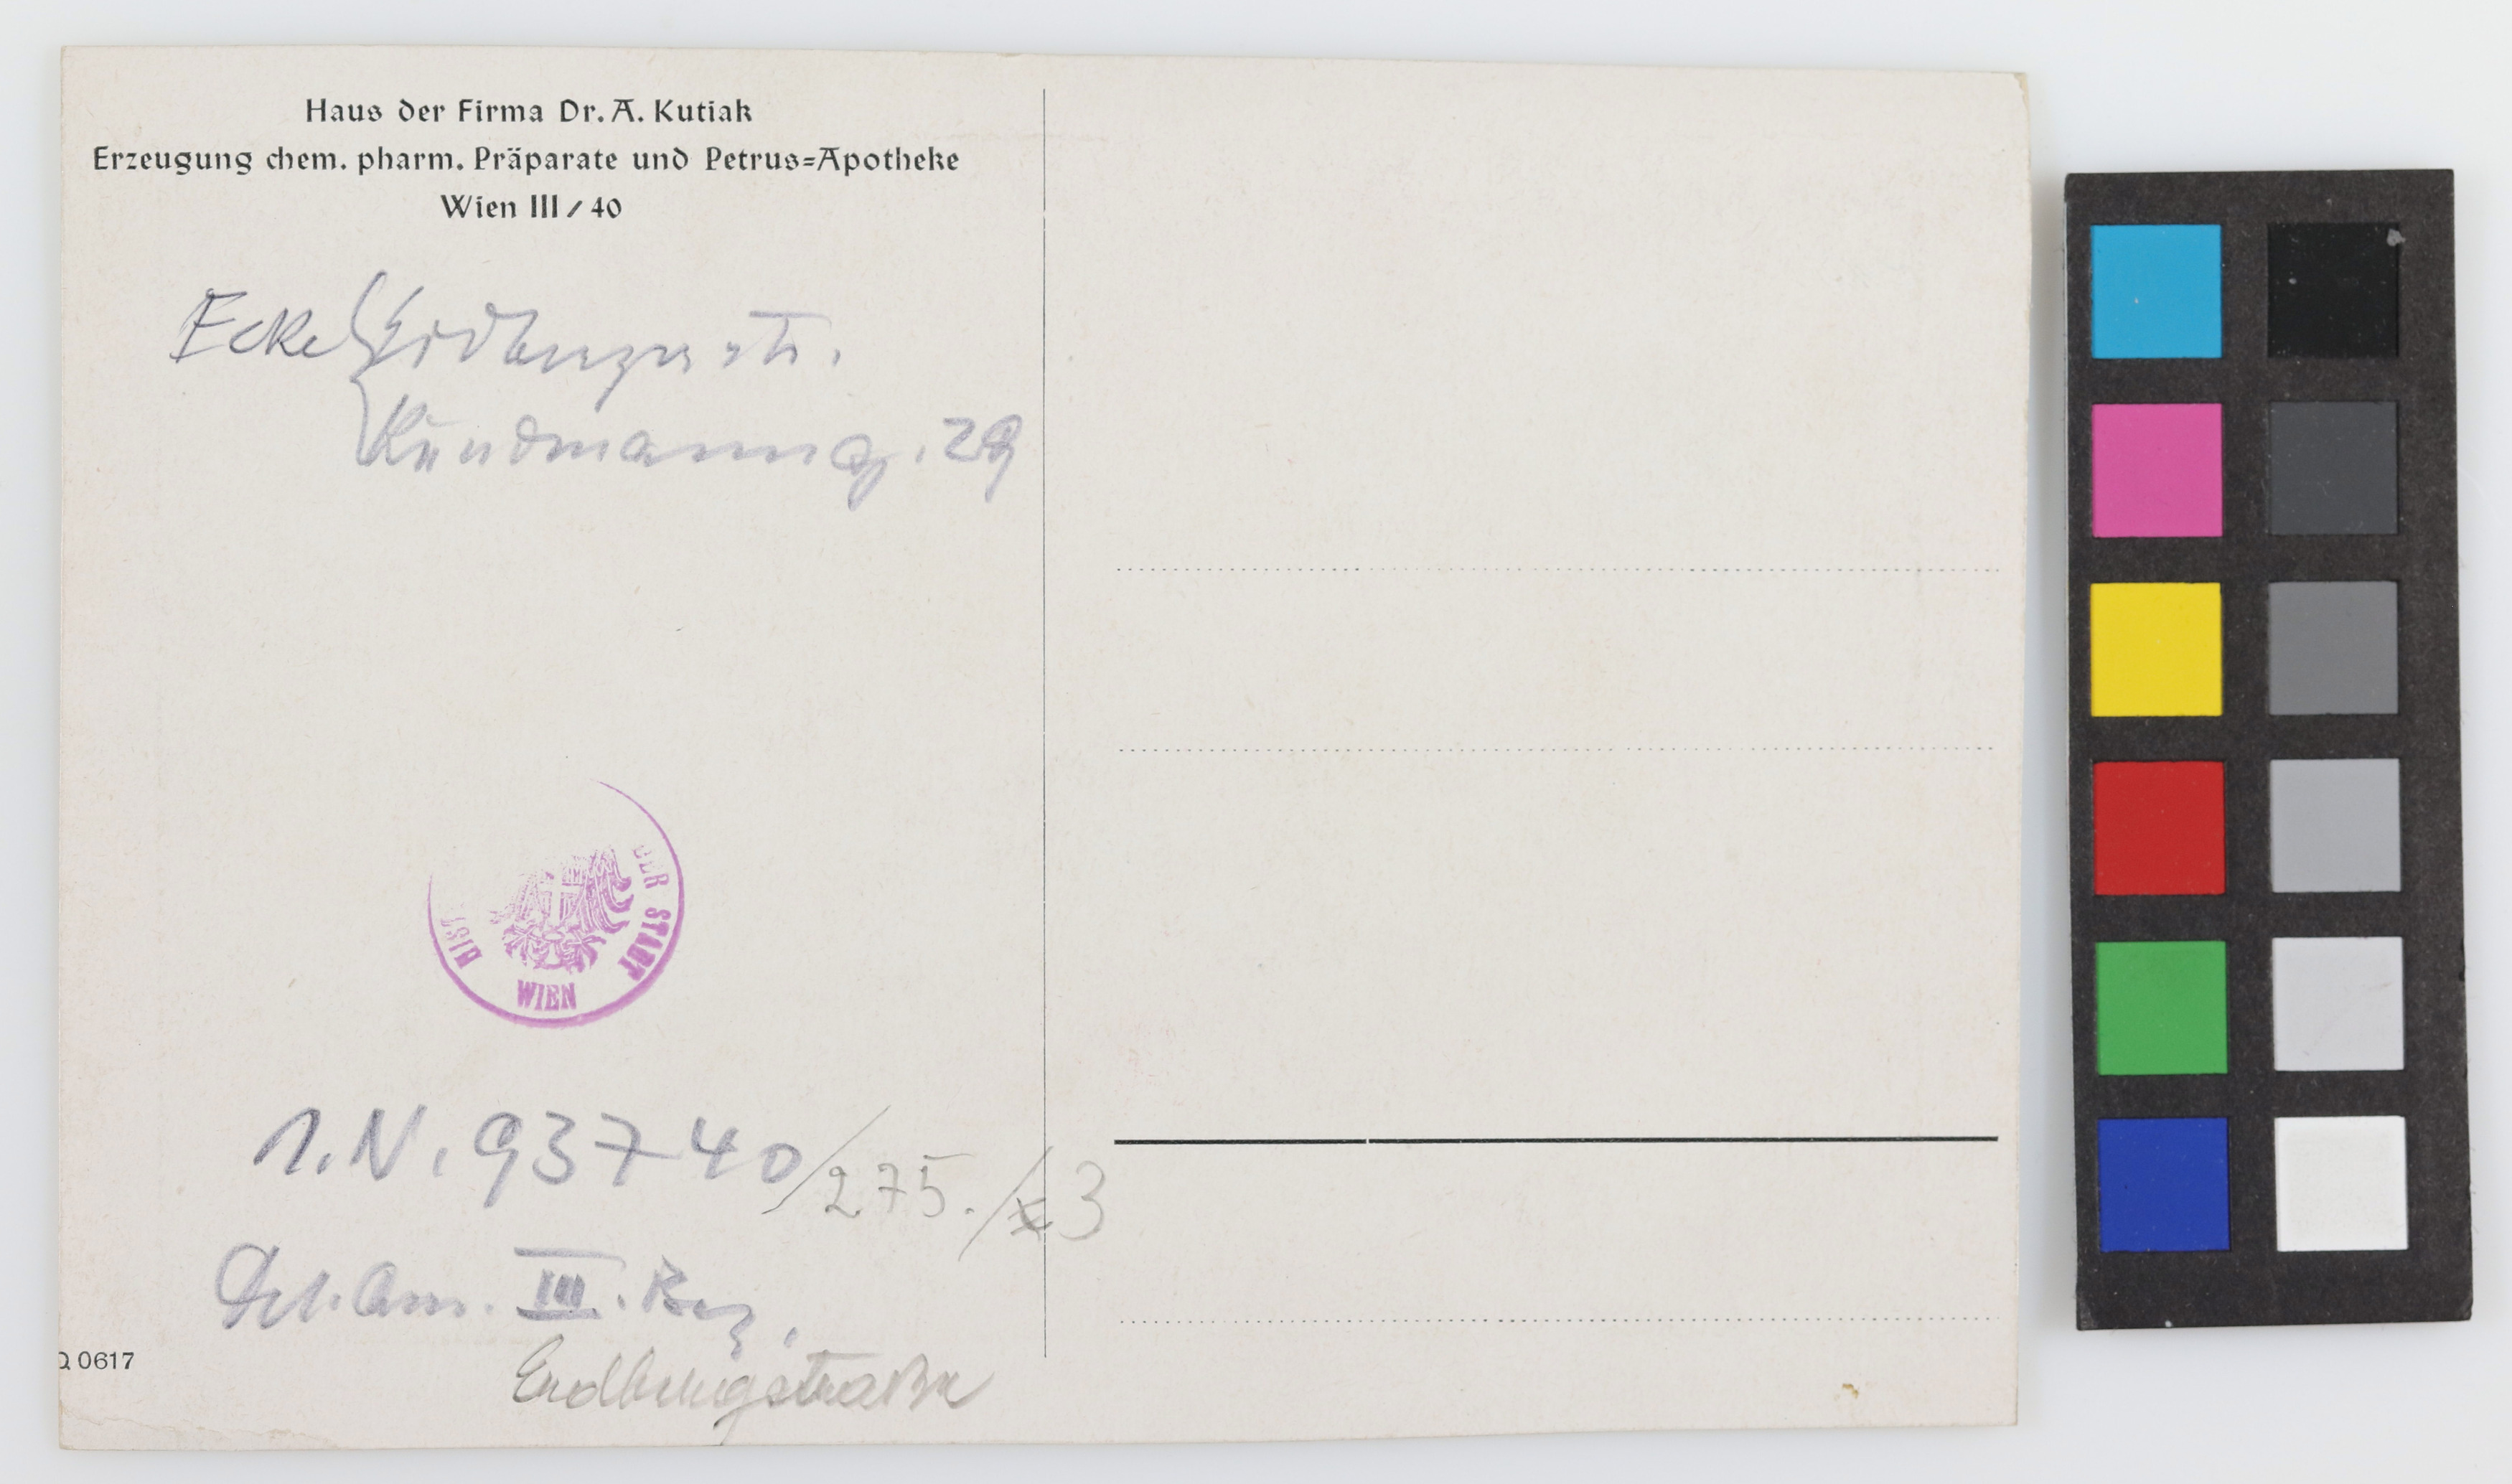 Haus der Firma Dr. A. Kutiak
Erzeugung chem. pharm. Präparate und Petrus=Apotheke
Wien III / 40
Ecke Erdbergerstr.
Kundmanng. 29
DER STADT
WIEN
HIST
I.N. 93740/275./3
III. Bez.
Erdbergstraße
Q 0617